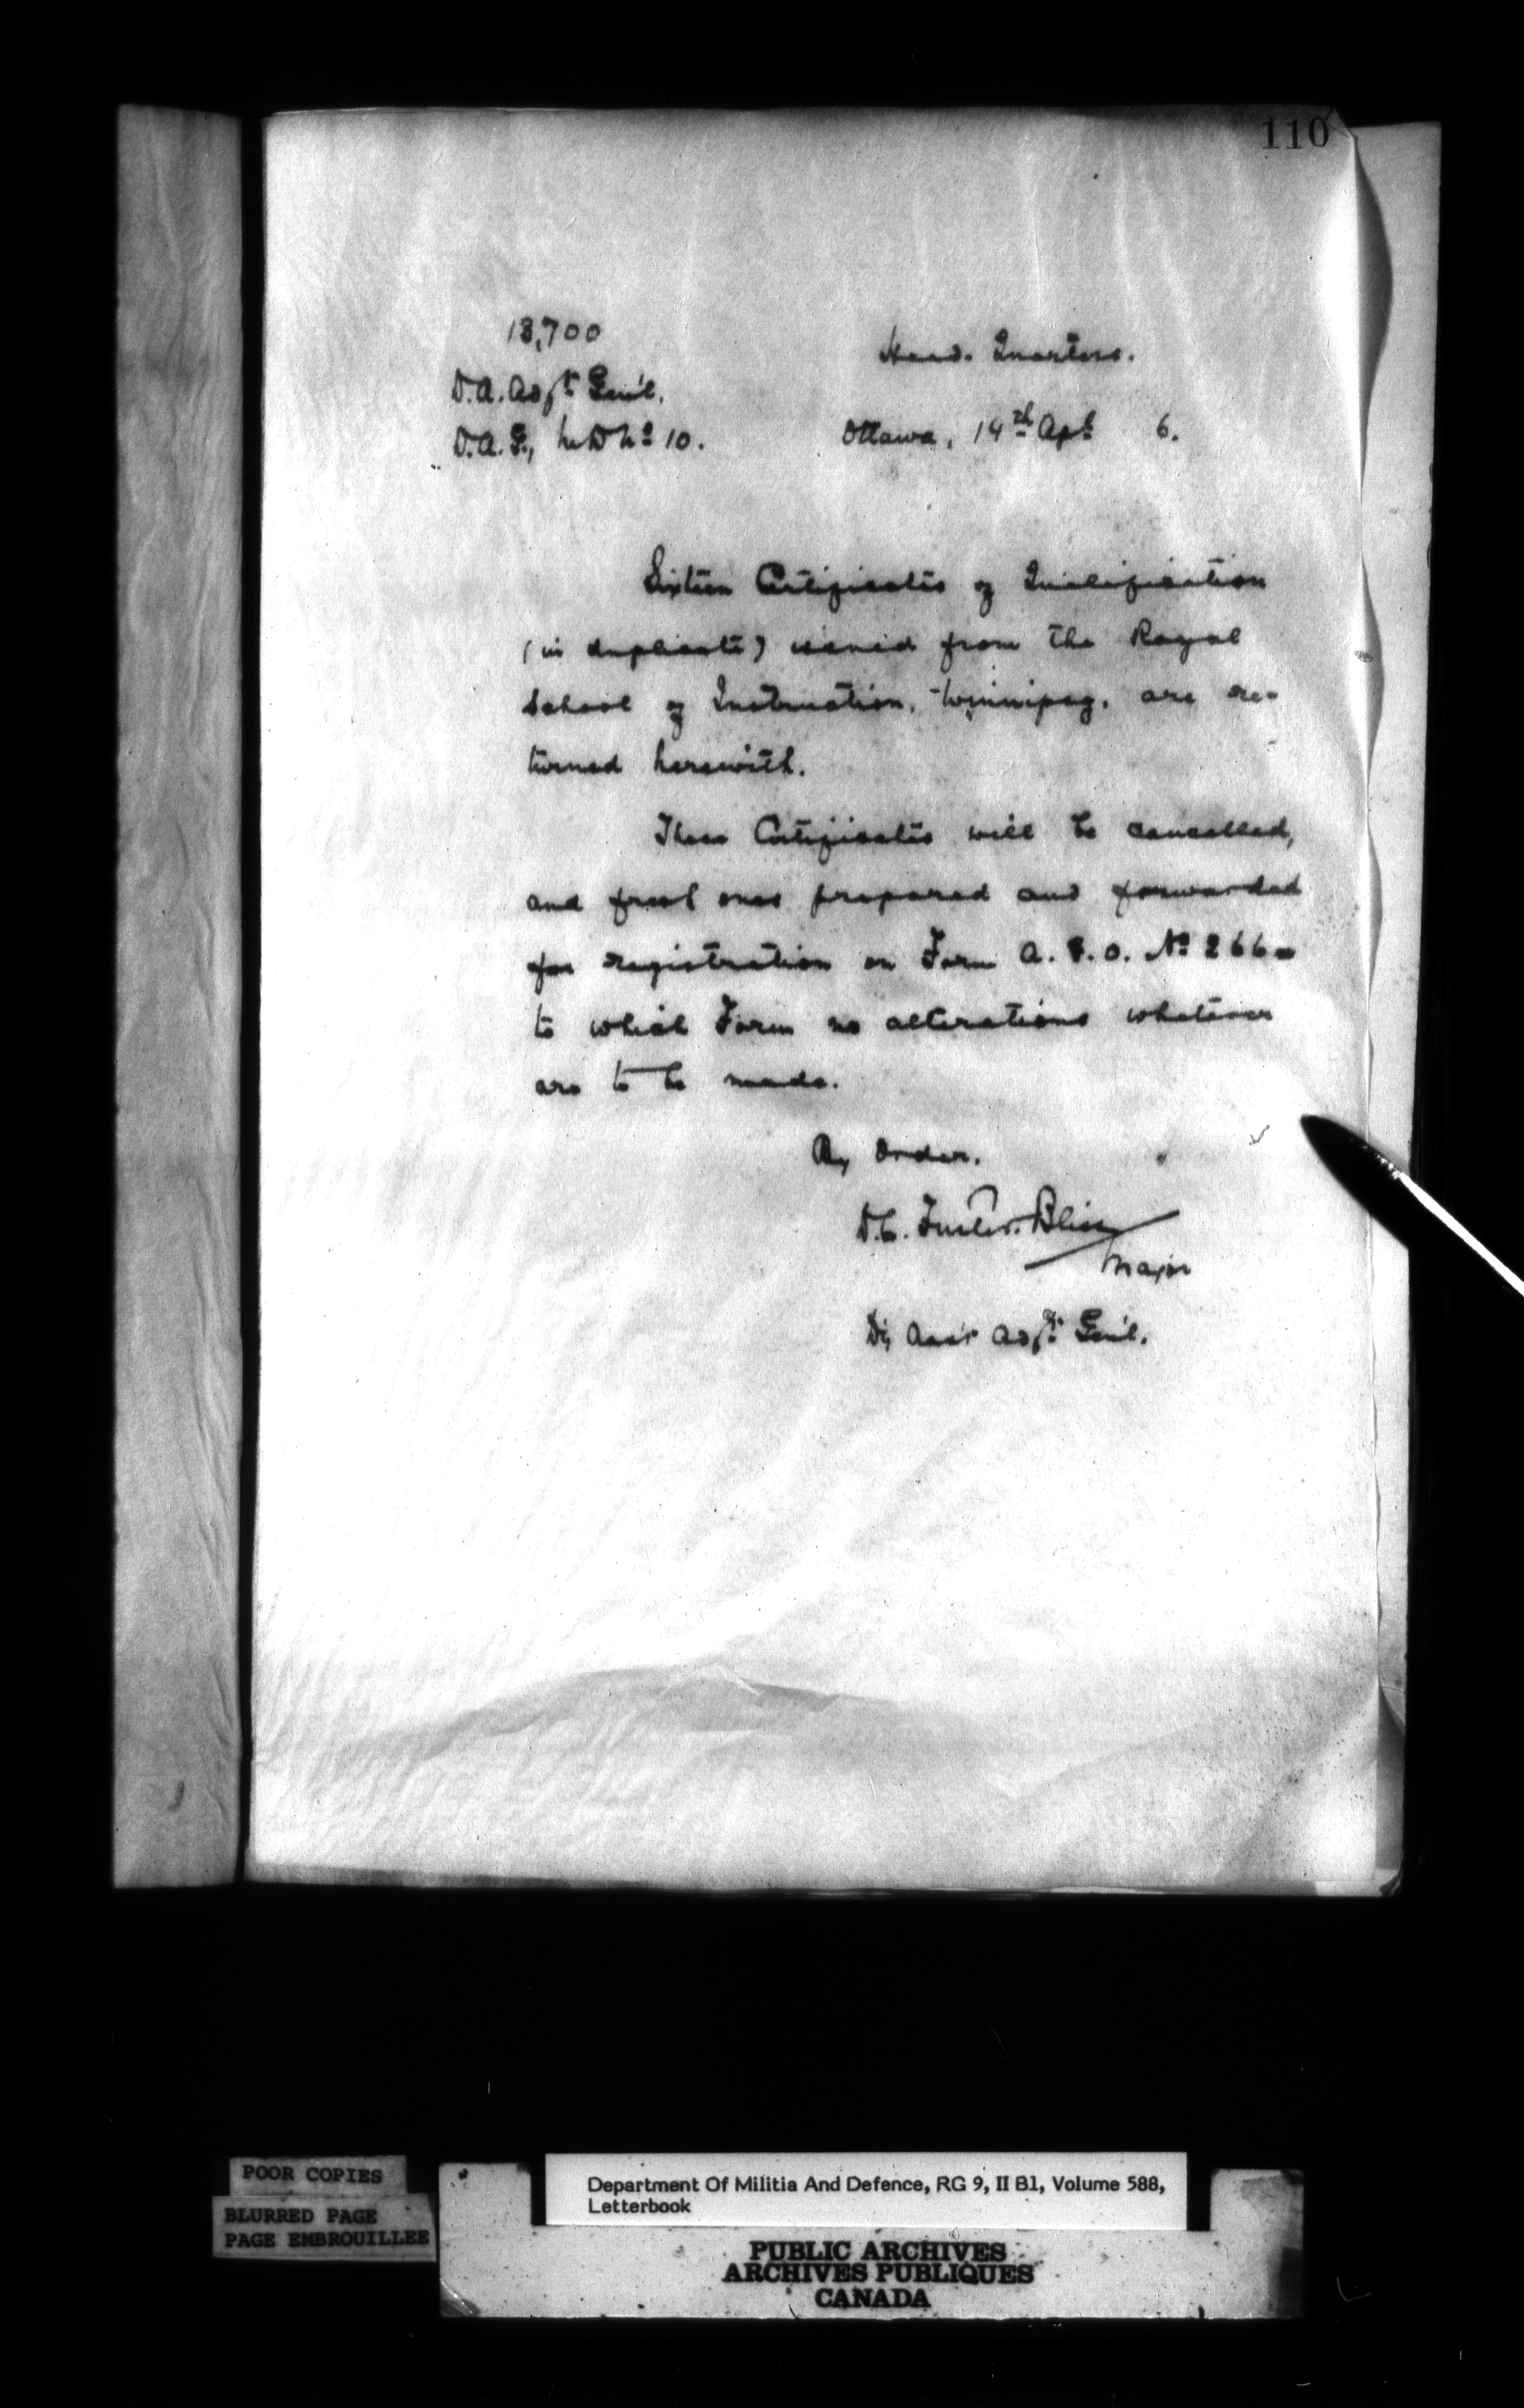 110
13,700
D.A. Adjt. Gen'l.
D.A.G., M.D. No 10.
Head-Quarters.
Ottawa, 14th Apl. 6.
Sixteen Certificates of Qualification
(in duplicate) issued from the Royal
School of Instruction, Winnipeg, are re-
turned herewith.
These Certificates will be cancelled,
and fresh ones prepared and forwarded
for registration on Form A.G.O. No 266
to which Form no alterations whatever
are to be made.
By Order.
Bliss
Major
Dy Asst Adjt. Gen'l.
POOR COPIES
BLURRED PAGE
PAGE EMBROUILLEE
Department Of Militia And Defence, RG 9, II B1, Volume 588,
Letterbook
PUBLIC ARCHIVES
ARCHIVES PUBLIQUES
CANADA